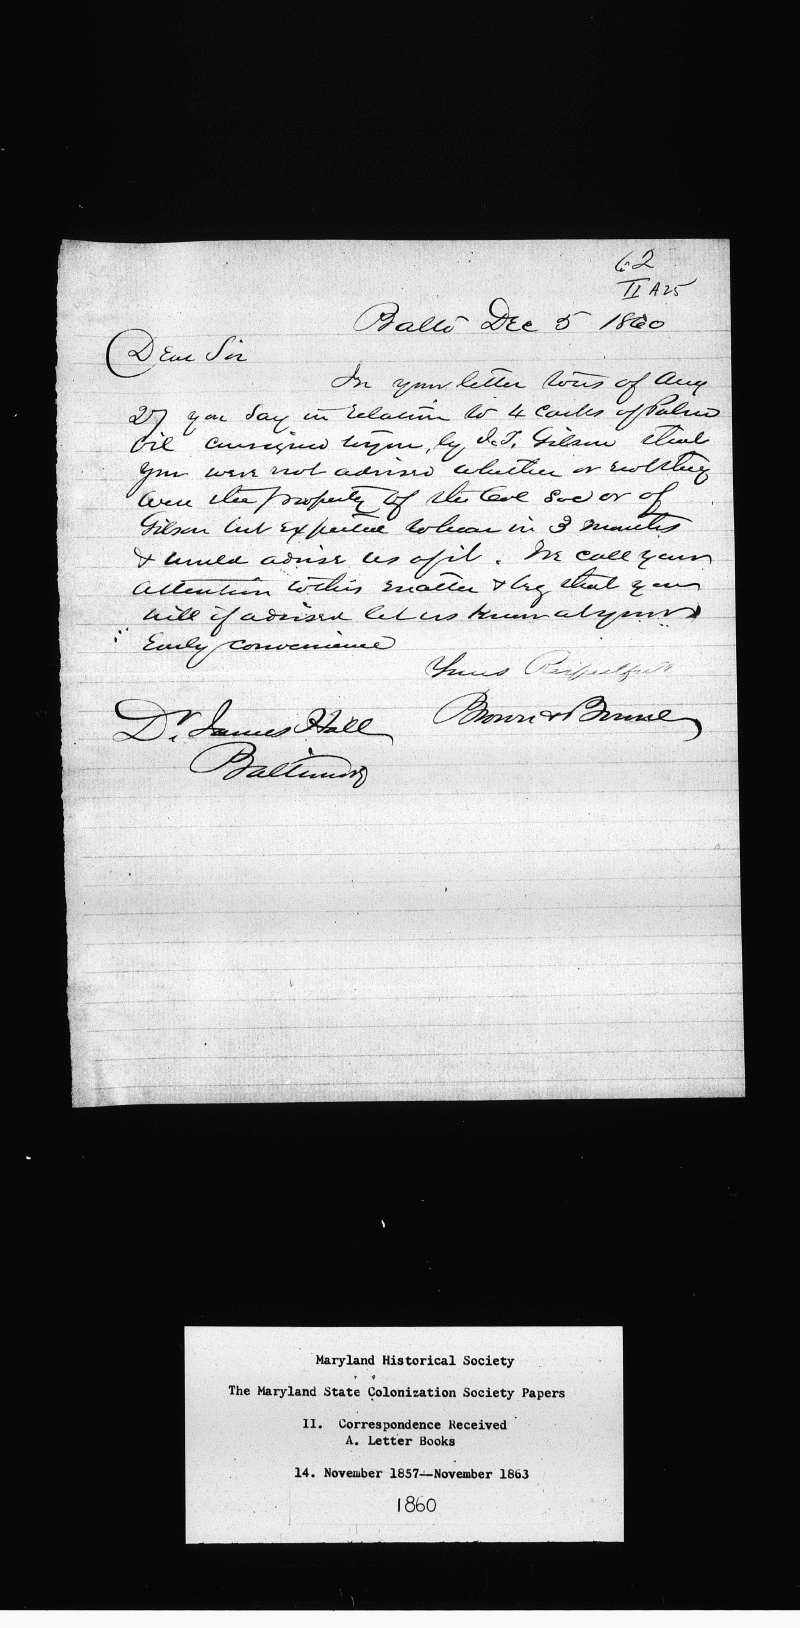 62
II A25
Balto Dec 5 1860
Dear Sir
In your letter to us of Aug
27 you say in relation to 4 casks of Palm
Oil consigned to you, by J. T. Gibson that
you were not advised whether or not they
were the property of the Col Soc or of
Gibson but expected to hear in 3 months
& would advise us of it. We call your
attention to this matter & beg that you
will if advised let us know at your
Early convenience
Yours Respectfully
Dr. James Hall
Baltimore
Brown & Brune
Maryland Historical Society
The Maryland State Colonization Society Papers
II. Correspondence Received
A. Letter Books
14. November 1857--November 1863
1860